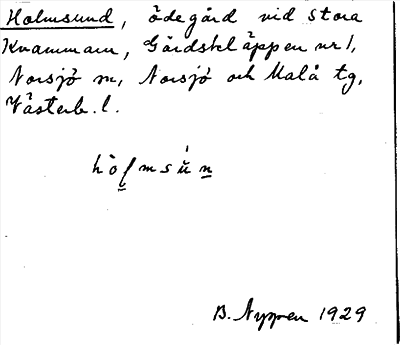 Holmsund, ödegård vid Stora
Kvammarn, Gårdskläppen nr 1,
Norsjö sn, Norsjö och Malå tg,
Västerb. l.
hòḷmsu̇́n̲
B. Nyppen 1929